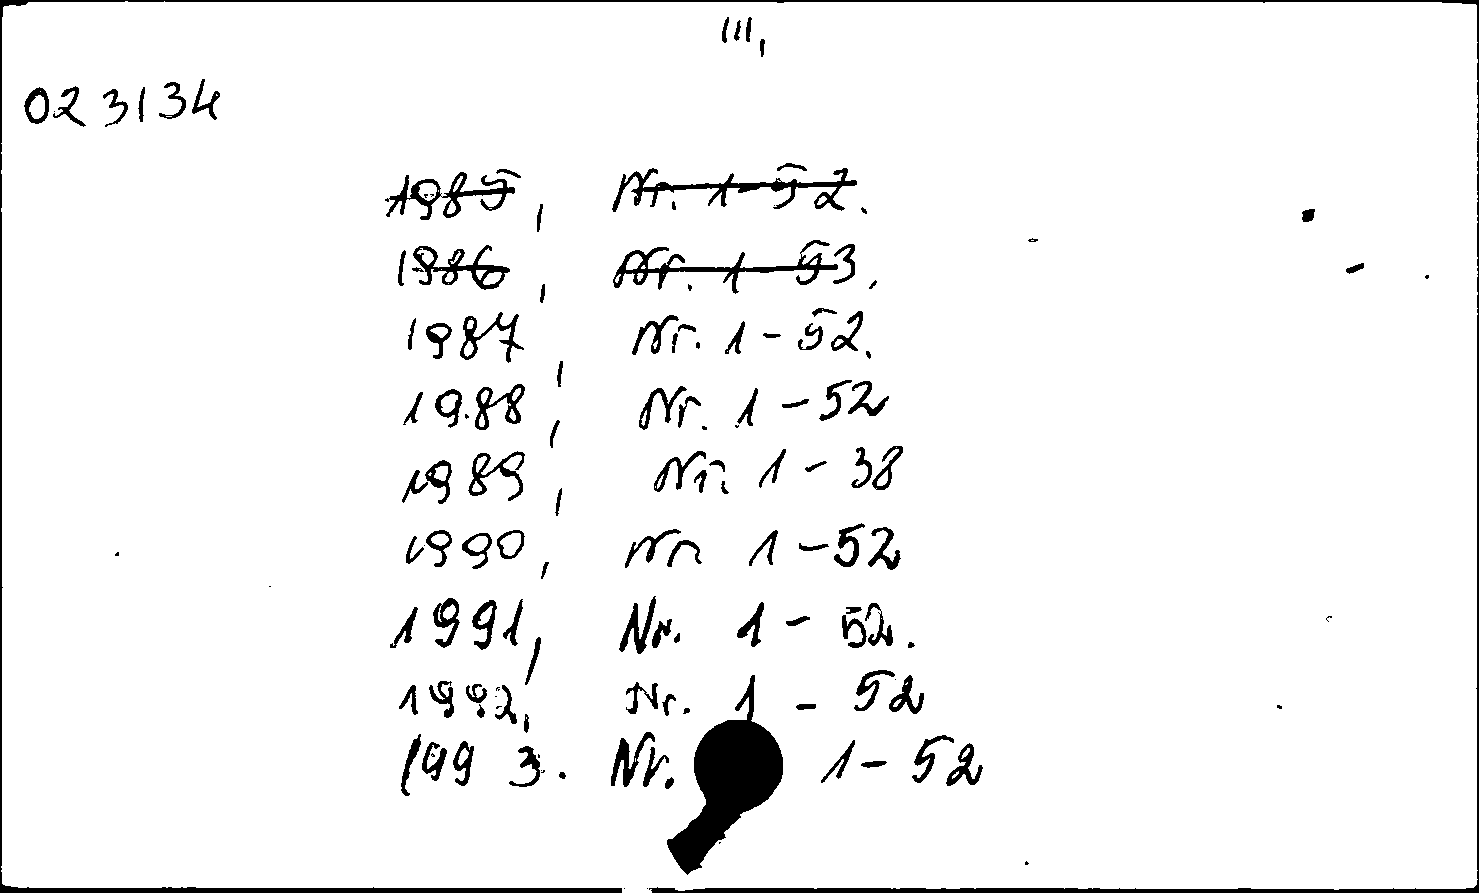 III,
023134
1985, Nr. 1-52.
1986, Nr. 1-53.
1987, Nr. 1-52.
1988, Nr. 1-52
1989, Nr. 1-38
1990, Nr. 1-52
1991, Nr. 1-52.
1992, Nr. 1-52
1993. Nr. 1-52